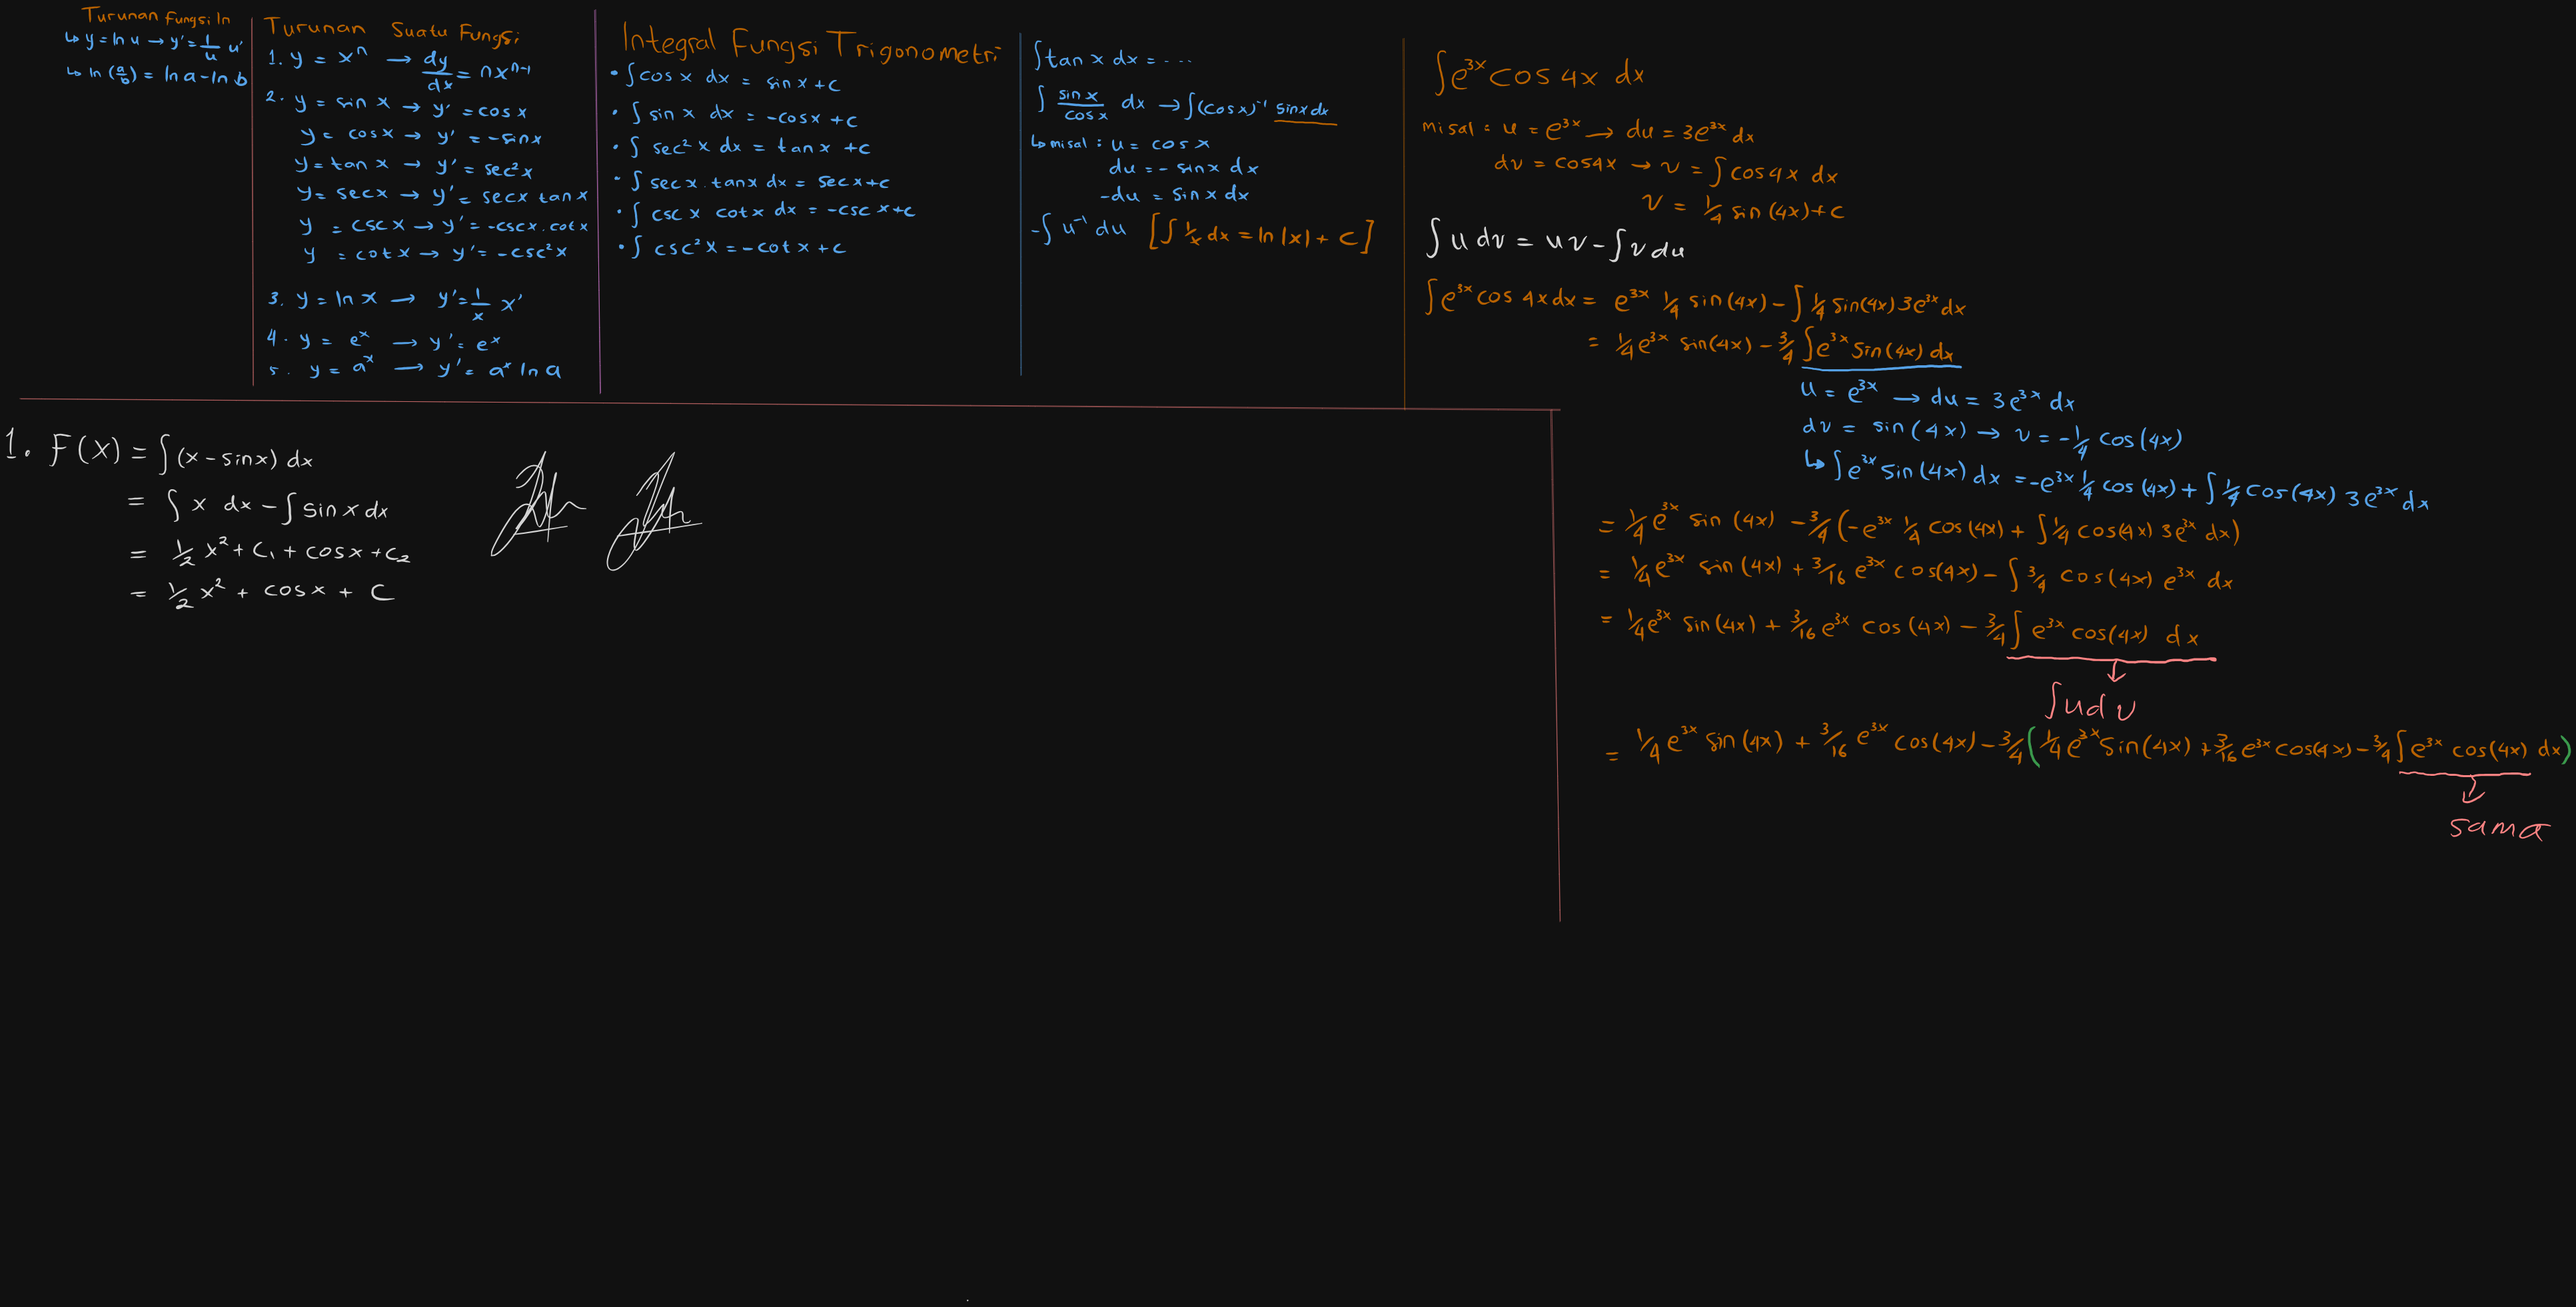 Turunan Fungsi ln
↳ y = ln u → y' = 1/u u'
↳ ln (a/b) = ln a - ln b
Turunan Suatu Fungsi
1. y = xⁿ → dy/dx = nxⁿ⁻¹
2. y = sin x → y' = cos x
y = cos x → y' = -sin x
y = tan x → y' = sec²x
y = sec x → y' = sec x tan x
y = csc x → y' = -csc x . cot x
y = cot x → y' = -csc²x
3. y = ln x → y' = 1/x x'
4. y = eˣ → y' = eˣ
5. y = aˣ → y' = aˣ ln a
Integral Fungsi Trigonometri
• ∫cos x dx = sin x + c
• ∫ sin x dx = -cos x + c
• ∫ sec² x dx = tan x + c
• ∫ sec x . tan x dx = sec x + c
• ∫ csc x cot x dx = -csc x + c
• ∫ csc² x = -cot x + c
∫tan x dx = ...
∫ sin x/cos x dx → ∫(cos x)⁻¹ sin x dx
↳ misal : u = cos x
du = - sin x dx
-du = sin x dx
-∫ u⁻¹ du [∫ 1/x dx = ln |x| + C]
∫e³ˣ cos 4x dx
misal : u = e³ˣ → du = 3e³ˣ dx
dv = cos4x → v = ∫ cos 4x dx
v = 1/4 sin (4x) + c
∫ u dv = uv - ∫ v du
∫e³ˣ cos 4x dx = e³ˣ 1/4 sin (4x) - ∫ 1/4 sin(4x) 3e³ˣ dx
= 1/4 e³ˣ sin(4x) - 3/4 ∫e³ˣ sin (4x) dx
u = e³ˣ → du = 3e³ˣ dx
dv = sin (4x) → v = -1/4 cos (4x)
↳ ∫e³ˣ sin (4x) dx = -e³ˣ 1/4 cos (4x) + ∫ 1/4 cos (4x) 3e³ˣ dx
= 1/4 e³ˣ sin (4x) - 3/4 (-e³ˣ 1/4 cos (4x) + ∫ 1/4 cos(4x) 3e³ˣ dx)
= 1/4 e³ˣ sin (4x) + 3/16 e³ˣ cos(4x) - ∫ 3/4 cos (4x) e³ˣ dx
= 1/4 e³ˣ sin (4x) + 3/16 e³ˣ cos (4x) - 3/4 ∫ e³ˣ cos(4x) dx
↓
∫u dv
= 1/4 e³ˣ sin (4x) + 3/16 e³ˣ cos(4x) - 3/4 (1/4 e³ˣ sin (4x) + 3/16 e³ˣ cos(4x) - 3/4 ∫ e³ˣ cos(4x) dx)
↓
sama
1. F(x) = ∫(x - sin x) dx
= ∫ x dx - ∫ sin x dx
= 1/2 x² + C₁ + cos x + C₂
= 1/2 x² + cos x + C